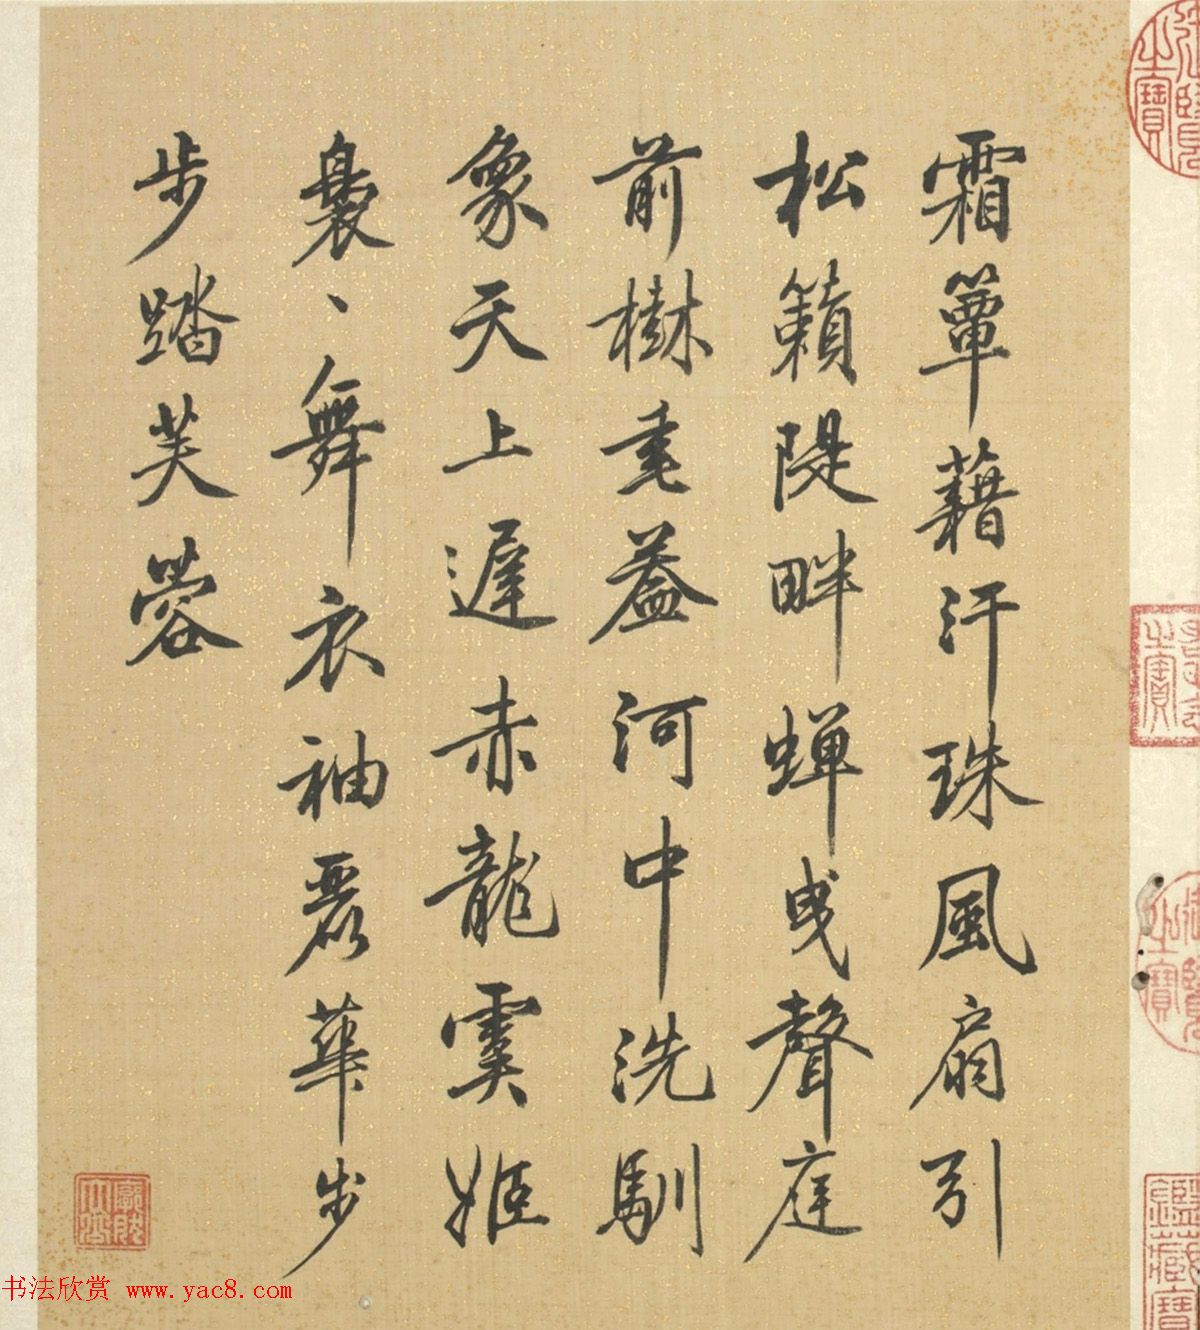 霜簟藉汗珠風扇引
松籟隄畔蟬曳聲庭
前樹重葢河中洗馴
象天上遲赤龍虞姬
裊、舞衣袖麗華步
步踏芙蓉
书法欣赏 www.yac8.com